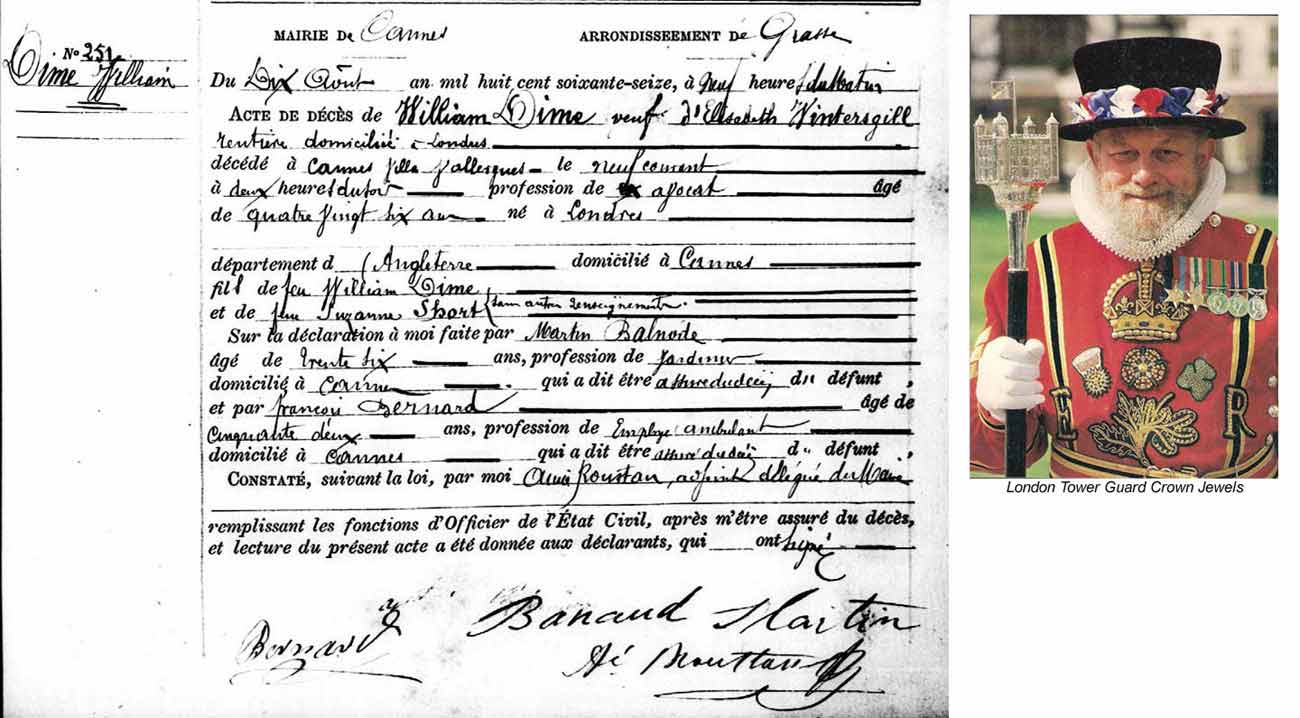 MAIRIE DE Cannes ARRONDISSEMENT DE Grasse
N° 251
Dime William
Du Dix Août an mil huit cent soixante-seize, à Neuf heures du Matin
ACTE DE DÉCÈS de William Dime veuf d'Elisabeth Wintersgill
rentière domicilié à Londres
décédé à Cannes villa le neuf courant
à deux heures du soir profession de avocat âgé
de quatre vingt six ans né à Londres
département d'Angleterre domicilié à Cannes
fils de feu William Dime
et de feu Suzanne Short (sans autres renseignements.
Sur la déclaration à moi faite par Martin
âgé de trente six ans, profession de Jardinier
domicilié à Cannes qui a dit être du défunt,
et par françois Bernard âgé de
Cinquante deux ans, profession de Employé ambulant
domicilié à Cannes qui a dit être du défunt,
CONSTATÉ, suivant la loi, par moi adjoint délégué du Maire
remplissant les fonctions d'Officier de l'État Civil, après m'être assuré du décès,
et lecture du présent acte a été donnée aux déclarants, qui ont signé
Banaud Martin
Bernard
London Tower Guard Crown Jewels
E R